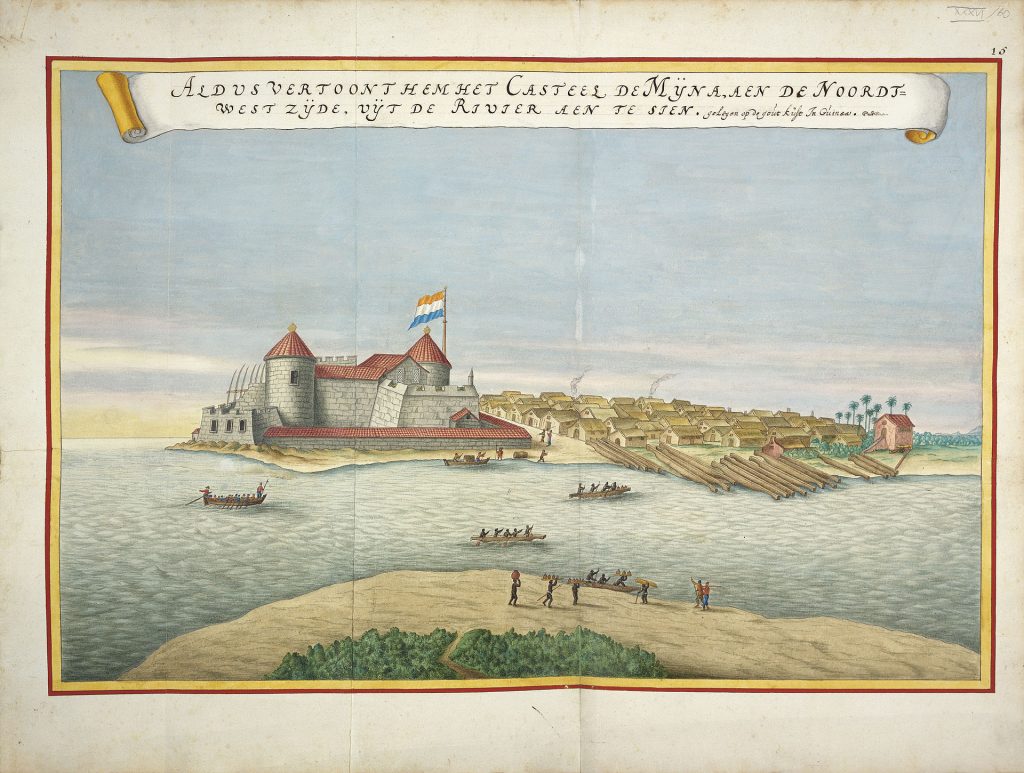 XXXVI /60.
16
ALDUS VERTOONT HEM HET CASTEEL DE MŸNA, AEN DE NOORDT=
WEST ZŸDE, VŸT DE RIVIER AEN TE SIEN. gelegen op de gout kust In Guinea.